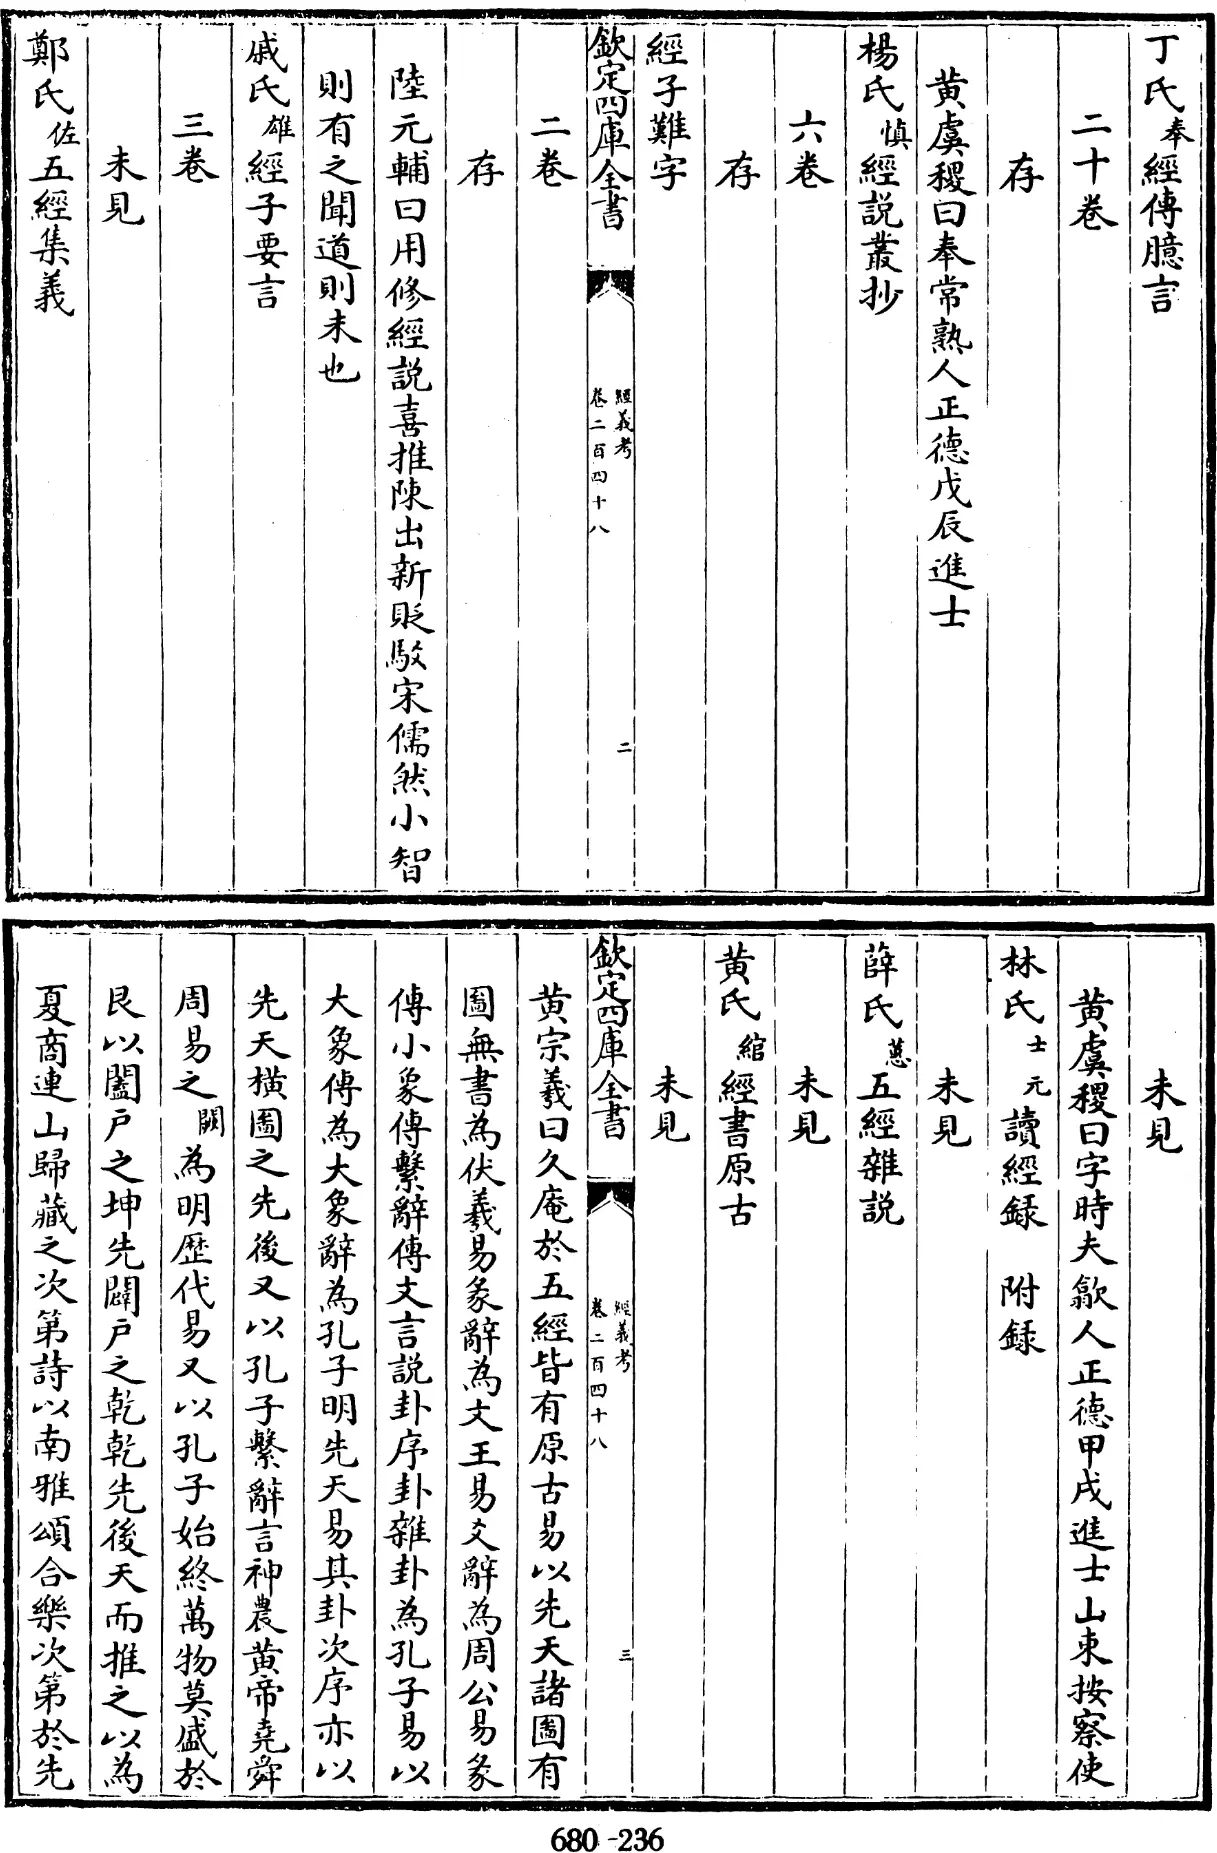 丁氏奉經傳臆言
二十卷
存
黄虞稷曰奉常熟人正德戊辰進士
楊氏慎經説叢抄
六卷
存
經子難字
欽定四庫全書
經義考
卷二百四十八
二
二卷
存
陸元輔曰用修經説喜推陳出新貶駁宋儒然小智
則有之聞道則未也
戚氏雄經子要言
三卷
未見
鄭氏佐五經集義
未見
黄虞稷曰字時夫歙人正德甲戌進士山東按察使
林氏士元讀經録 附録
未見
薛氏蕙五經雜説
未見
黄氏綰經書原古
未見
欽定四庫全書
經義考
卷二百四十八
三
黄宗羲曰久庵於五經皆有原古易以先天諸圖有
圖無書為伏羲易彖辭為文王易爻辭為周公易彖
傳小象傳繫辭傳文言説卦序卦雜卦為孔子易以
大象傳為大象辭為孔子明先天易其卦次序亦以
先天橫圖之先後又以孔子繫辭言神農黄帝堯舜
周易之闕為明歴代易又以孔子始終萬物莫盛於
艮以闔戶之坤先闢戶之乾乾先後天而推之以為
夏商連山歸藏之次第詩以南雅頌合樂次第於先
680-236